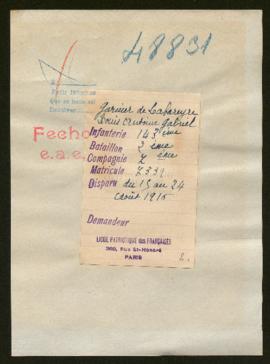 48831
Pedir Informes
Fecho
e.a.e.
Garnier de Labareyre
Louis Antoine Gabriel
Infanterie 143ème
Bataillon 2ème
Compagnie 7ème
Matricule 7339
Disparu du 15 au 24
août 1915
Demandeur
LIGUE PATRIOTIQUE des FRANÇAISES
368, Rue St-Honoré
PARIS